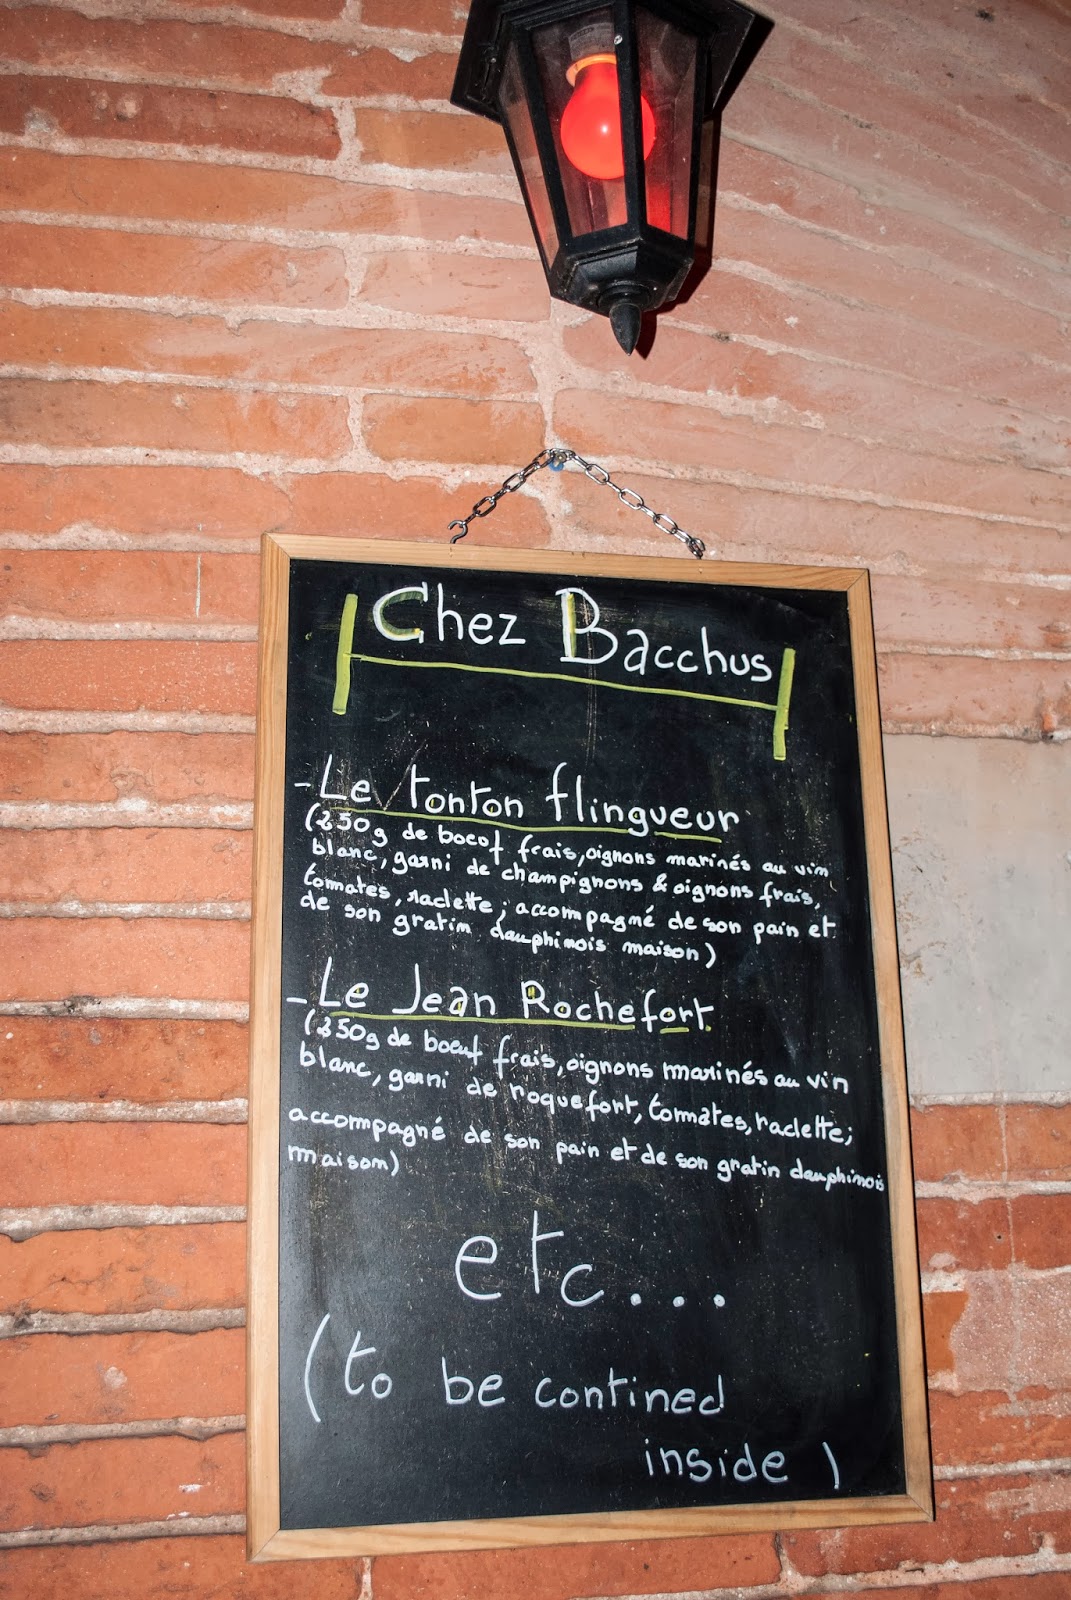 Chez Bacchus
- Le tonton flingueur
(250g de boeuf frais, oignons marinés au vin
blanc, garni de champignons & oignons frais,
tomates, raclette; accompagné de son pain et
de son gratin dauphinois maison)
- Le Jean Rochefort
(250g de boeuf frais, oignons marinés au vin
blanc, garni de roquefort, tomates, raclette;
accompagné de son pain et de son gratin dauphinois
maison)
etc...
(to be contined
inside)